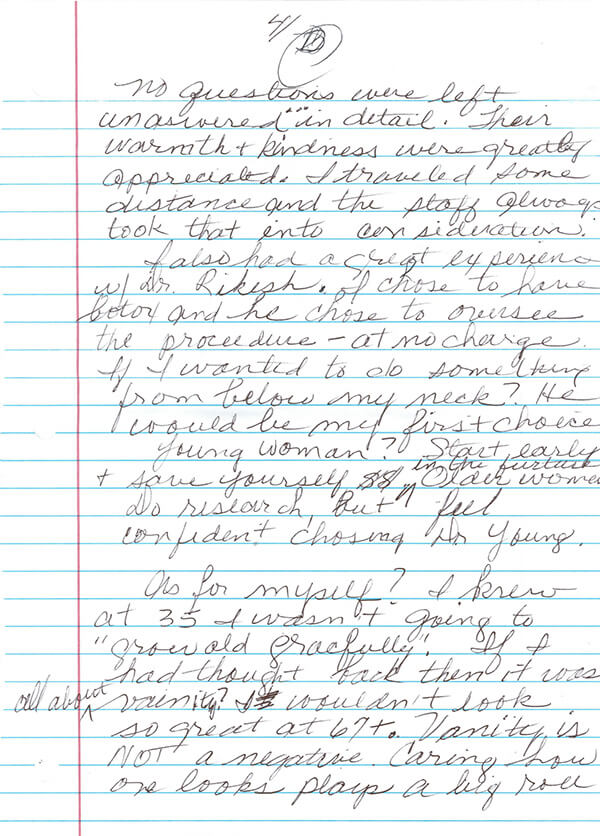 4/
No questions were left
unaswered "in detail. Their
warmth + kindness were greatly
appreciated. I traveled some
distance and the staff always
took that into consideration.
I also had a great experienc
w/ Dr. Rikesh. I chose to have
botox and he chose to oversee
the procedure - at no charge.
If I wanted to do something
from below my neck? He
would be my first choice
Young woman? Start early
in the furture
+ save yourself $$ ^ Older women
Do research, but feel
confident chosing Dr Young.
As for myself? I knew
at 35 I wasn't going to
"grow old gracfully". If I
had thought back then it was
all about ^ vainity? I wouldn't look
so great at 67+. Vanity is
NOT a negative. Caring how
one looks plays a big roll